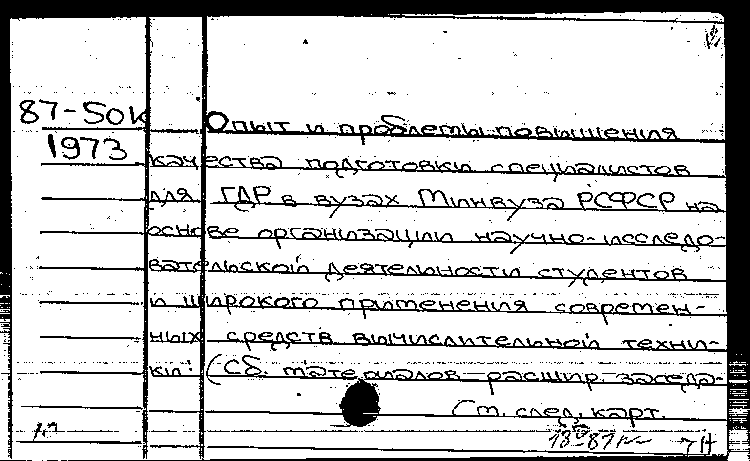 87-50к
1973
Опыт и проблемы повышения
качества подготовки специалистов
для ГДР в вузах Минвуза РСФСР на
основе организации научно-исследо-
вательской деятельности студентов
и широкого применения современ-
ных средств вычислительной техни-
ки: (Сб. материалов расшир. заседа-
См. след. карт.